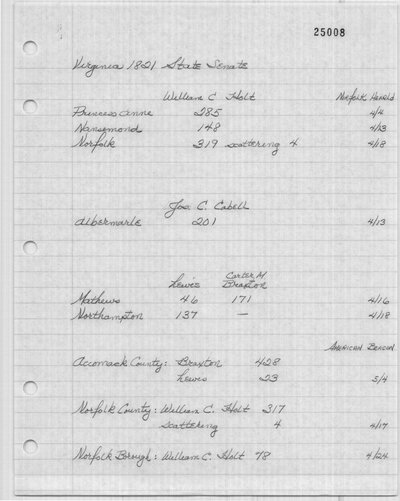 25008
Virginia 1821 State Senate
William C Holt Norfolk Herald
Princess Anne 285 4/4
Nansemond 148 4/13
Norfolk 319 scattering 4 4/18
Jos. C. Cabell
Albermarle 201 4/13
Lewis Carter M Braxton
Mathews 46 171 4/16
Northampton 137 — 4/18
American Beacon
Accomack County: Braxton 428
Lewis 23 5/4
Norfolk County: William C. Holt 317
Scattering 4 4/17
Norfolk Borough: William C. Holt 48 4/24